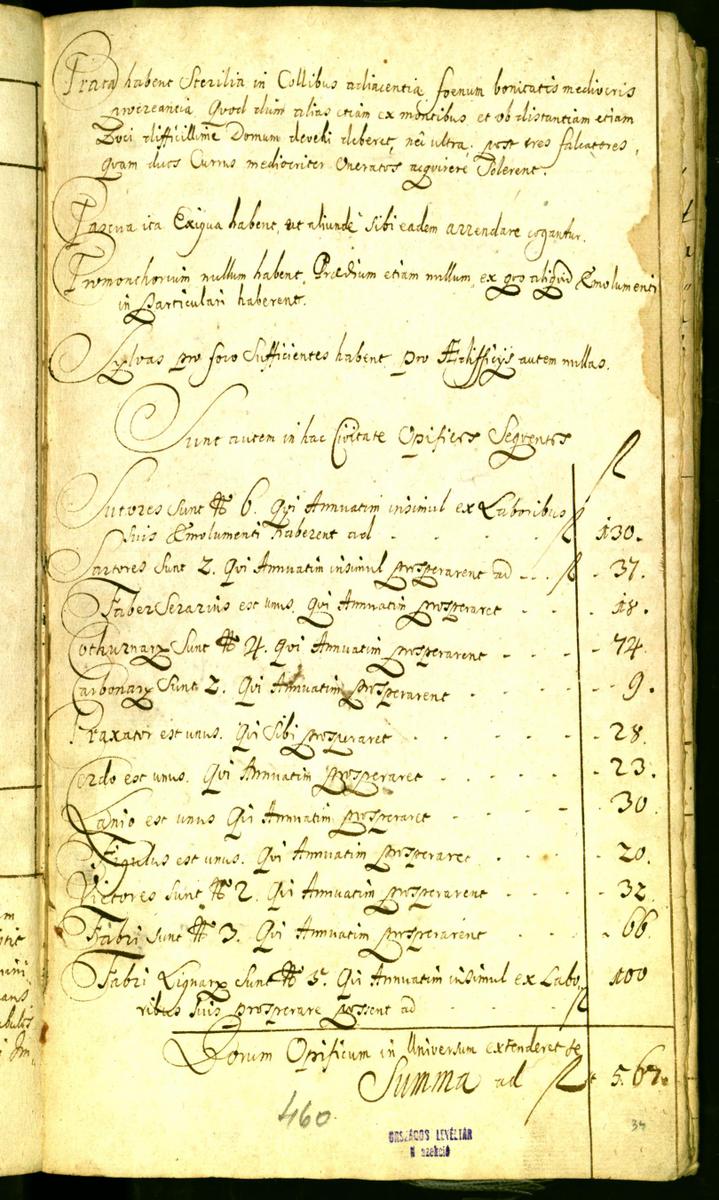 Prata habent Sterilia in Collibus adiacentia foenum bonitatis mediocris
procreantia Quod dum alias etiam ex montibus et ob distantiam etiam
Loci difficillime Domum devehi deberet, nec ultra post tres falcatores,
quam duos Currus mediocriter Oneratos acquirere Solerent.
Pascua ita Exigua habent, ut aliunde sibi eadem arrendare cogantur.
Promonthorium nullum habent, Prædium etiam nullum, ex quo aliquid Emolumenti
in particulari haberent.
Sylvas pro foco Sufficientes habent pro Ædifficijs autem nullas.
Sunt autem in hac Civitate Opifices Seqventes
fl
Sutores Sunt No 6. Qvi Annuatim insimul ex Laboribus
Suis Emolumenti haberent ad . . . . fl 130.
Sartores Sunt 2. Qvi Annuatim insimul prosperarent ad . . . fl . 37.
Faber Serarius est unus. qvi Annuatim prosperaret . . . . 18.
Cothurnarÿ Sunt No 4. qvi Annuatim prosperarent . . . . 74.
Carbonarÿ Sunt 2. Qvi Annuatim prosperarent . . . . 9.
Braxator est unus. Qvi Sibi prosperaret . . . . 28.
Cerdo est unus. Qvi Annuatim prosperaret . . . . 23.
Lanio est unus Qvi Annuatim prosperaret . . . . 30
Figulus est unus. Qvi Annuatim prosperaret . . . . 20.
Victores Sunt No 2. Qvi Annuatim prosperarent . . . . 32.
Fabri Sunt No 3. Qvi Annuatim prosperarent . . . . 66.
Fabri Lignarÿ Sunt No 5. Qvi Annuatim insimul ex Labo
ribus Suis prosperare possent ad . . . . fl 100
Horum Opificum in Universum extenderet se
Summa ad fl 567.
460
ORSZÁGOS LEVÉLTÁR
N szekció
34